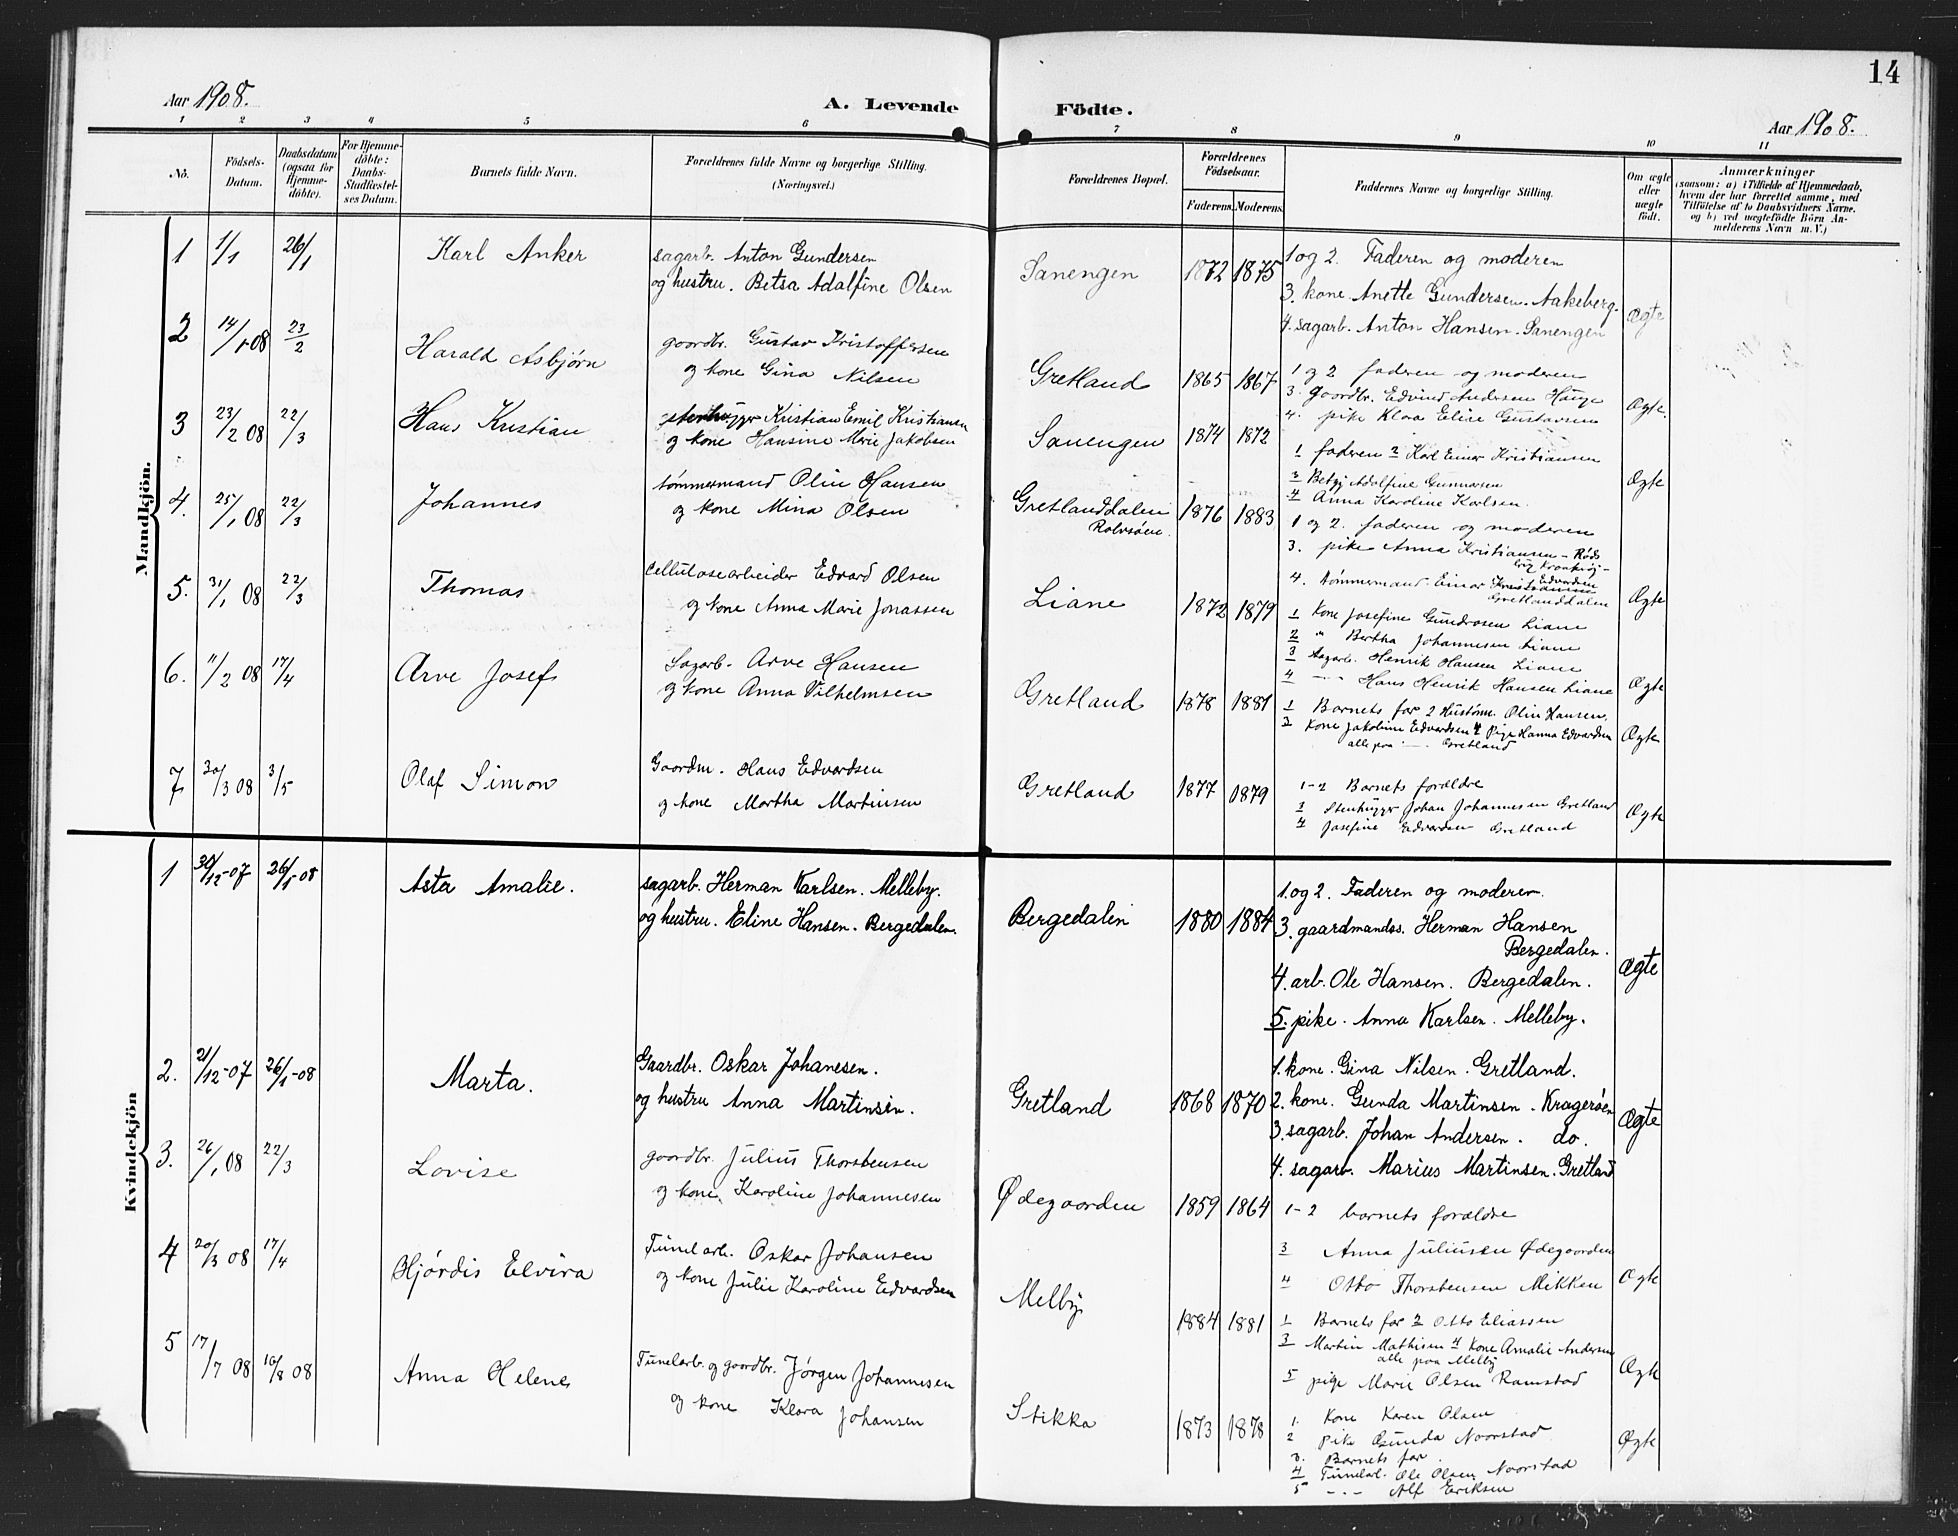 14
Aar 1908.
A. Levende Födte.
Aar 1908.
1 2 3 4 5 6 7 8 9 10 11
No.
Födsels-Datum.
Daabsdatum (ogsaa for Hjemme-döbte).
For Hjemme-döbte: Daabs-Stadfæstel-ses Datum.
Barnets fulde Navn.
Forældrenes fulde Navne og borgerlige Stilling.
(Næringsvei.)
Forældrenes Bopæl.
Forældrenes Födselsaar.
Faderens. Moderens.
Faddernes Navne og borgerlige Stilling.
Om ægte eller uægte födt.
Anmærkninger
(saasom: a) i Tilfælde af Hjemmedaab,
hvem der har forrettet samme, med
Tilföielse af to Daabsvidners Navne.
og b) ved uægtefödte Börn An-
melderens Navn m. V.)
Mandkjön.
1 1/1 26/1 Karl Anker
sagarb. Anton Gundersen
og hustru. Betsa Adalfine Olsen
Sanengen 1872 1875
1 og 2. Faderen og moderen
3. kone Anette Gundersen. Aakeberg.
4. sagarb. Anton Hansen. Sanengen
Ægte
2 14/1 08 23/2 Harald Asbjørn
gaardbr. Gustav Kristoffersen
og kone Gina Nilsen
Gretland 1865 1867
1 og 2 faderen og moderen
3. gaardbr. Edvind Andersen Hauge
4. pike Klara Eline Gustavsen
Ægte.
3 23/2 08 22/3 Hans Kristian
stenhugger Kristian Emil Kristiansen
og kone Hansine Marie Jakobsen
Sanengen 1874 1872
1 faderen 2 Karl Einar Kristiansen
3 Betzy Adolfine Gunnarsen
4 Anna Karoline Karlsen.
Ægte
4. 25/1 08 22/3 Johannes
tømmermand Olin Hansen
og kone Mina Olsen
Gretlanddalen
Rolvsøen.
1876 1883
1 og 2. faderen og moderen
3. pike Anna Kristiansen - Røds
4. tømmermand Einar Edvardsen
Gretlanddalen
Ægte
5. 31/1 08 22/3 Thomas
Cellulosearbeider Edvard Olsen
og kone Anna Marie Jonassen
Liane 1872 1879
1 Kone Josefine Gundrosen Liane
2 " Bertha Johannesen Liane
3 Sagarb. Henrik Hansen Liane
4 - - - Hans Henrik Hansen Liane
Ægte
6. 11/2 08 17/4 Arve Josef
Sagarb. Arve Hansen
og kone Anna Vilhelmsen
Gretland 1878 1881
1 Barnets far 2 Hustøm. Olin Hansen.
3 Kone Jakobine Edvardsen 4 Pige Hanna Edvardsen
alle paa - - - Gretland
Ægte
7 30/3 08 3/5 Olaf Simon
Gaardm. Hans Edvardsen
og kone Martha Martinsen
Gretland 1877 0879
1-2 Barnets forældre
3 Stenhugger Johan Johannesen Gretland
4 Josefine Edvardsen Gretland
Ægte
Kvindekjön
1 30/12-07 26/1-08 Asta Amalie.
sagarb. Herman Karlsen. Melleby.
og hustru. Eline Hansen. Bergedalen.
Bergedalen 1880 1884
1. og 2. Faderen og moderen.
3. gaardmandss. Herman Hansen
Bergedalen.
4. arb. Ole Hansen. Bergedalen.
5. pike. Anna Karlsen. Melleby.
Ægte
2. 21/12-07 26/1-08 Marta.
Gaardbr. Oskar Johanesen.
og hustru Anna Martinsen.
Gretland 1868 1870
1. kone. Gina Nilsen. Gretland.
2. kone. Gunda Martinsen. Kragerøen
3. sagarb. Johan Andersen. do.
4. sagarb. Marius Martinsen. Gretland
Ægte
3. 26/1 08 22/3 Lovise
gaardbr. Julius Thorstensen
og kone. Karoline Johannesen
Ødegaarden 1859 1864
1-2 barnets forældre
3 Anna Juliusen Ødegaarden
4 Otto Thorstensen Mikken
Ægte
4 20/3 08 17/4 Hjørdis Elvira
Tunelarb. Oskar Johansen
og kone Julie Karoline Edvardsen
Melby 1884 1881
1 Barnets far 2 Otto Eliassen
3 Martin Mathisen 4 Kone Amalie Andersen
alle paa Melby
5 pige Marie Olsen Ramstad
Ægte
5 17/7 08 16/8 08 Anna Helene
Tunelarb. og gaardbr. Jørgen Johannesen
og kone Klara Johansen
Stikka 1873 1878
1. Kone Karen Olsen
2 pike Gunda Navrstad
3. Barnets far.
4 Tunelarb. Ole Olsen Navrstad
5 - - - Alf Eriksen
Ægte